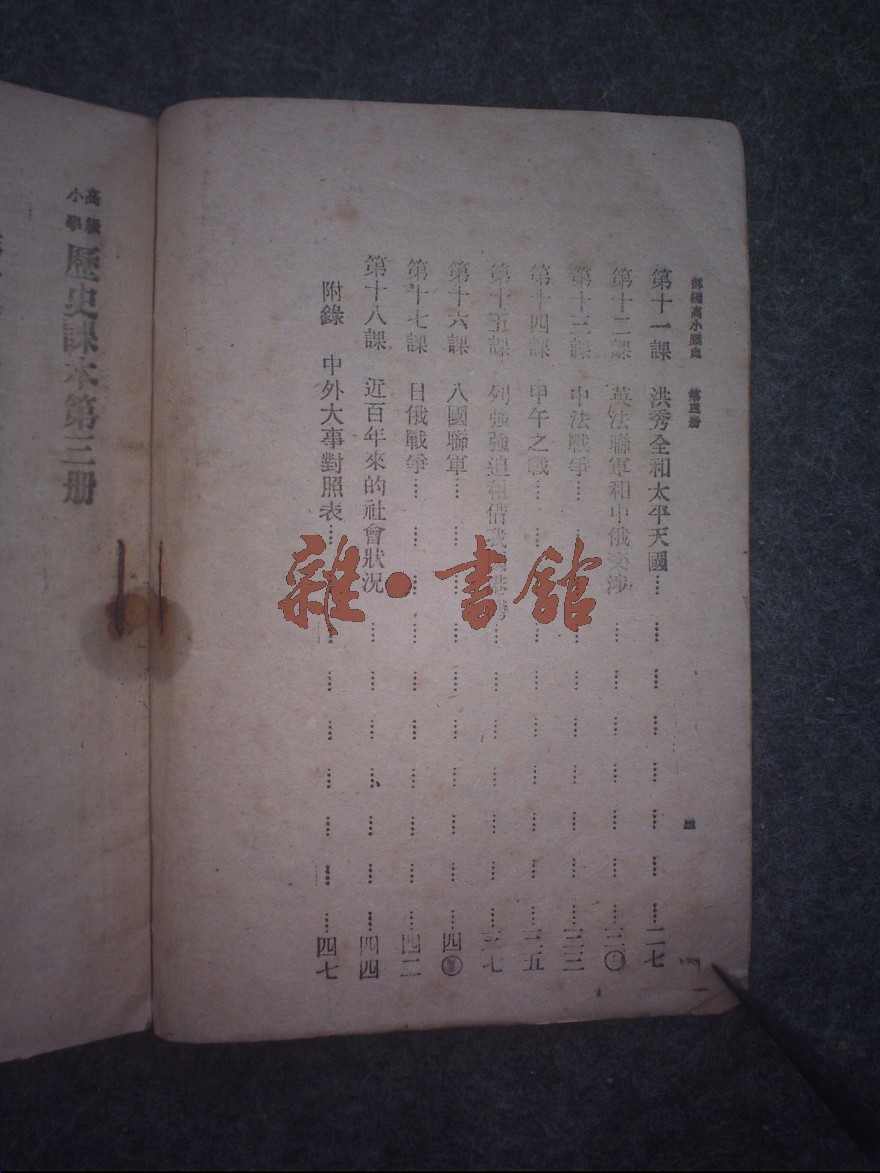 部編高小歷史 第三册
第十一課 洪秀全和太平天國 二七
第十二課 英法聯軍和中俄交涉 三〇
第十三課 中法戰爭 三三
第十四課 甲午之戰 三五
第十五課 列強強迫租借我國港灣 三七
第十六課 八國聯軍 四〇
第十七課 日俄戰爭 四二
第十八課 近百年來的社會狀况 四四
附錄 中外大事對照表 四七
高級小學 歷史課本第三册
雜·書館